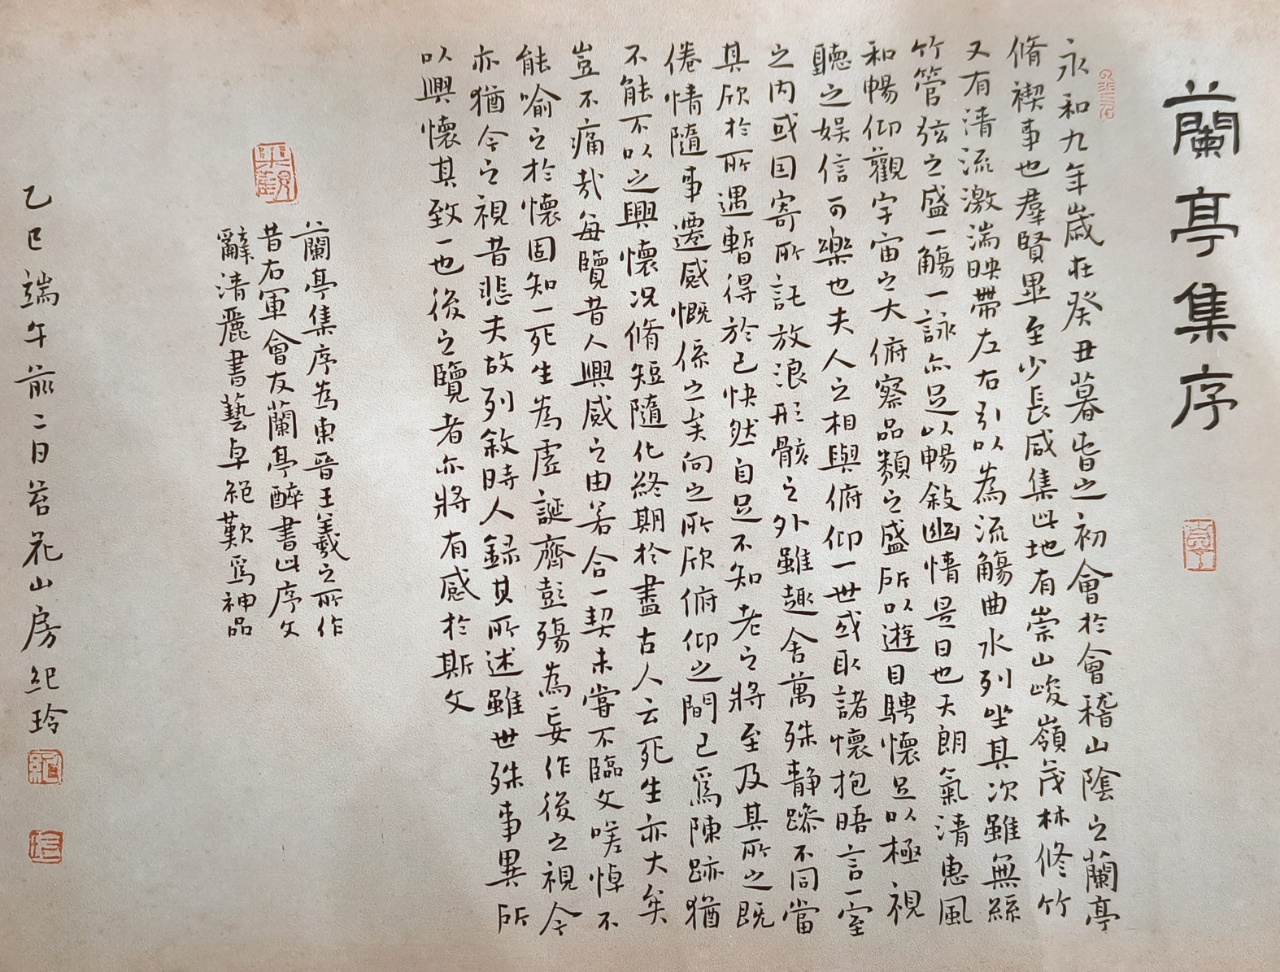 蘭亭集序
永和九年歲在癸丑暮春之初會於會稽山陰之蘭亭
脩禊事也羣賢畢至少長咸集此地有崇山峻嶺茂林修竹
又有清流激湍映帶左右引以為流觴曲水列坐其次雖無絲
竹管弦之盛一觴一詠亦足以暢敍幽情是日也天朗氣清惠風
和暢仰觀宇宙之大俯察品類之盛所以遊目騁懷足以極視
聽之娱信可樂也夫人之相與俯仰一世或取諸懷抱晤言一室
之内或因寄所託放浪形骸之外雖趣舍萬殊静躁不同當
其欣於所遇暫得於己快然自足不知老之將至及其所之既
倦情隨事遷感慨係之矣向之所欣俯仰之間已爲陳跡猶
不能不以之興懷况脩短隨化終期於盡古人云死生亦大矣
豈不痛哉每覽昔人興感之由若合一契未嘗不臨文嗟悼不
能喻之於懷固知一死生為虛誕齊彭殤為妄作後之視今
亦猶今之視昔悲夫故列敘時人録其所述雖世殊事異所
以興懷其致一也後之覽者亦將有感於斯文
蘭亭集序為東晉王羲之所作
昔右軍會友蘭亭醉書此序文
辭清麗書藝卓絕歎爲神品
乙巳端午前二日苔花山房紀玲
紀
玲